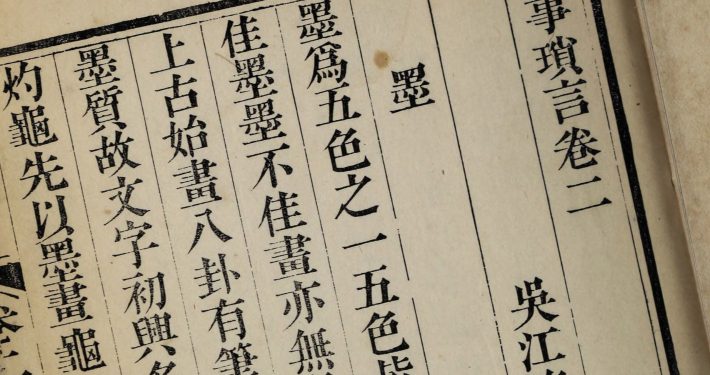 事瑣言卷二
吳江
墨
墨爲五色之一五色皆
佳墨墨不佳畫亦無
上古始畫八卦有筆
墨質故文字初興名
灼龜先以墨畫龜